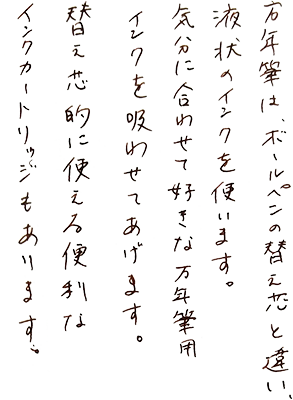 万年筆は、ボールペンの替え芯と違い、
液状のインクを使います。
気分に合わせて好きな万年筆用
インクを吸わせてあげます。
替え芯的に使える便利な
インクカートリッジもあります。